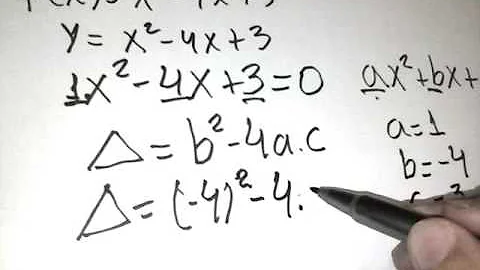 y = x² - 4x + 3
1x² - 4x + 3 = 0
ax² + bx +
a = 1
Δ = b² - 4a.c
b = -4
Δ = (-4)² - 4.